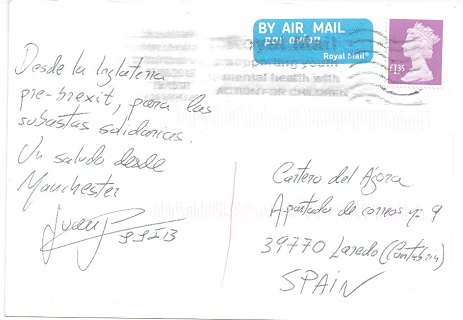 BY AIR MAIL
par avion
Royal Mail
£1.35
Royal Mail
supporting youth
mental health with
ACTION FOR CHILDREN
Desde la Inglaterra
pre-brexit, para las
subastas solidarias.
Un saludo desde
Manchester
Juan
Cartero del Ágora
Apartado de correos nº 9
39770 Laredo (Cantabria)
SPAIN